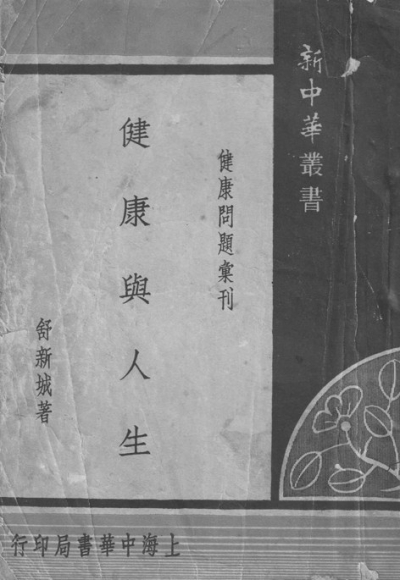 新中華叢書
健康問題彙刊
健康與人生
舒新城著
上海中華書局印行